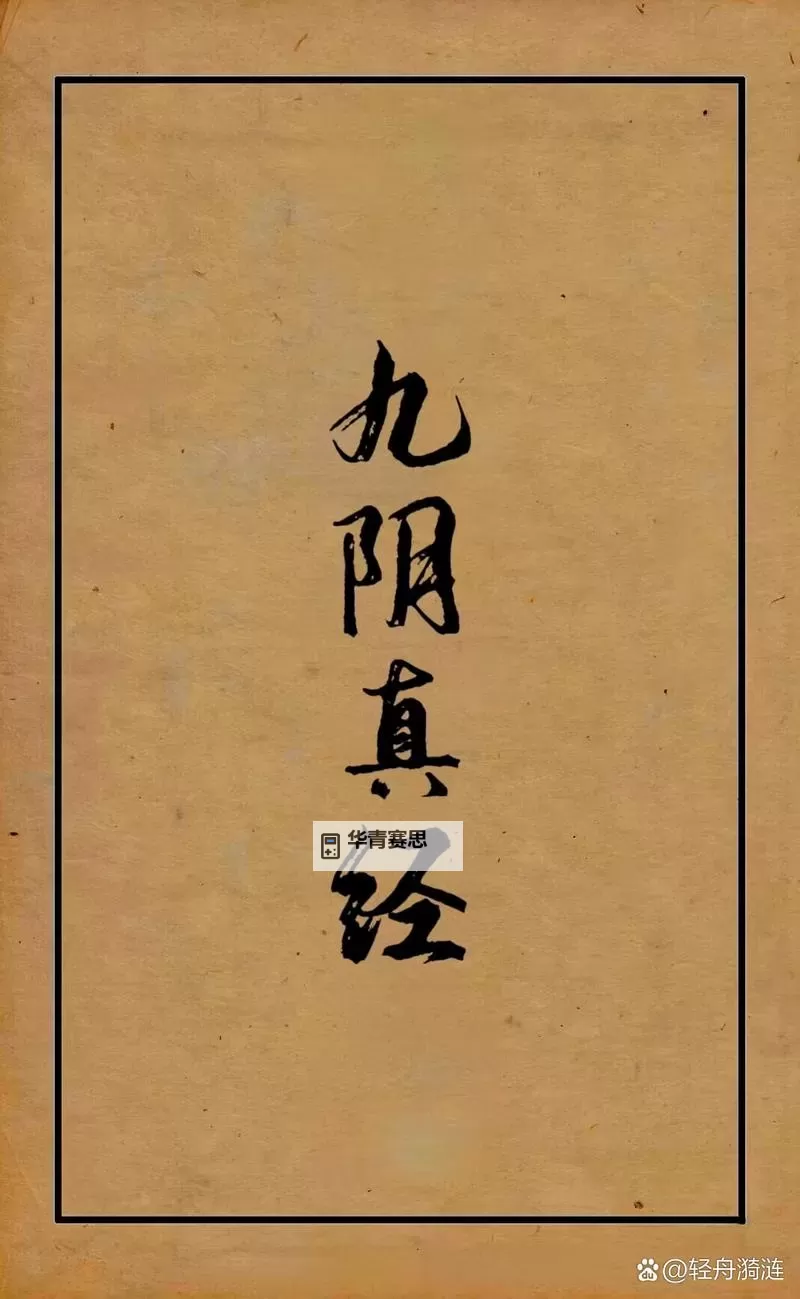 九阴真经
华青赛思
@轻舟漪涟